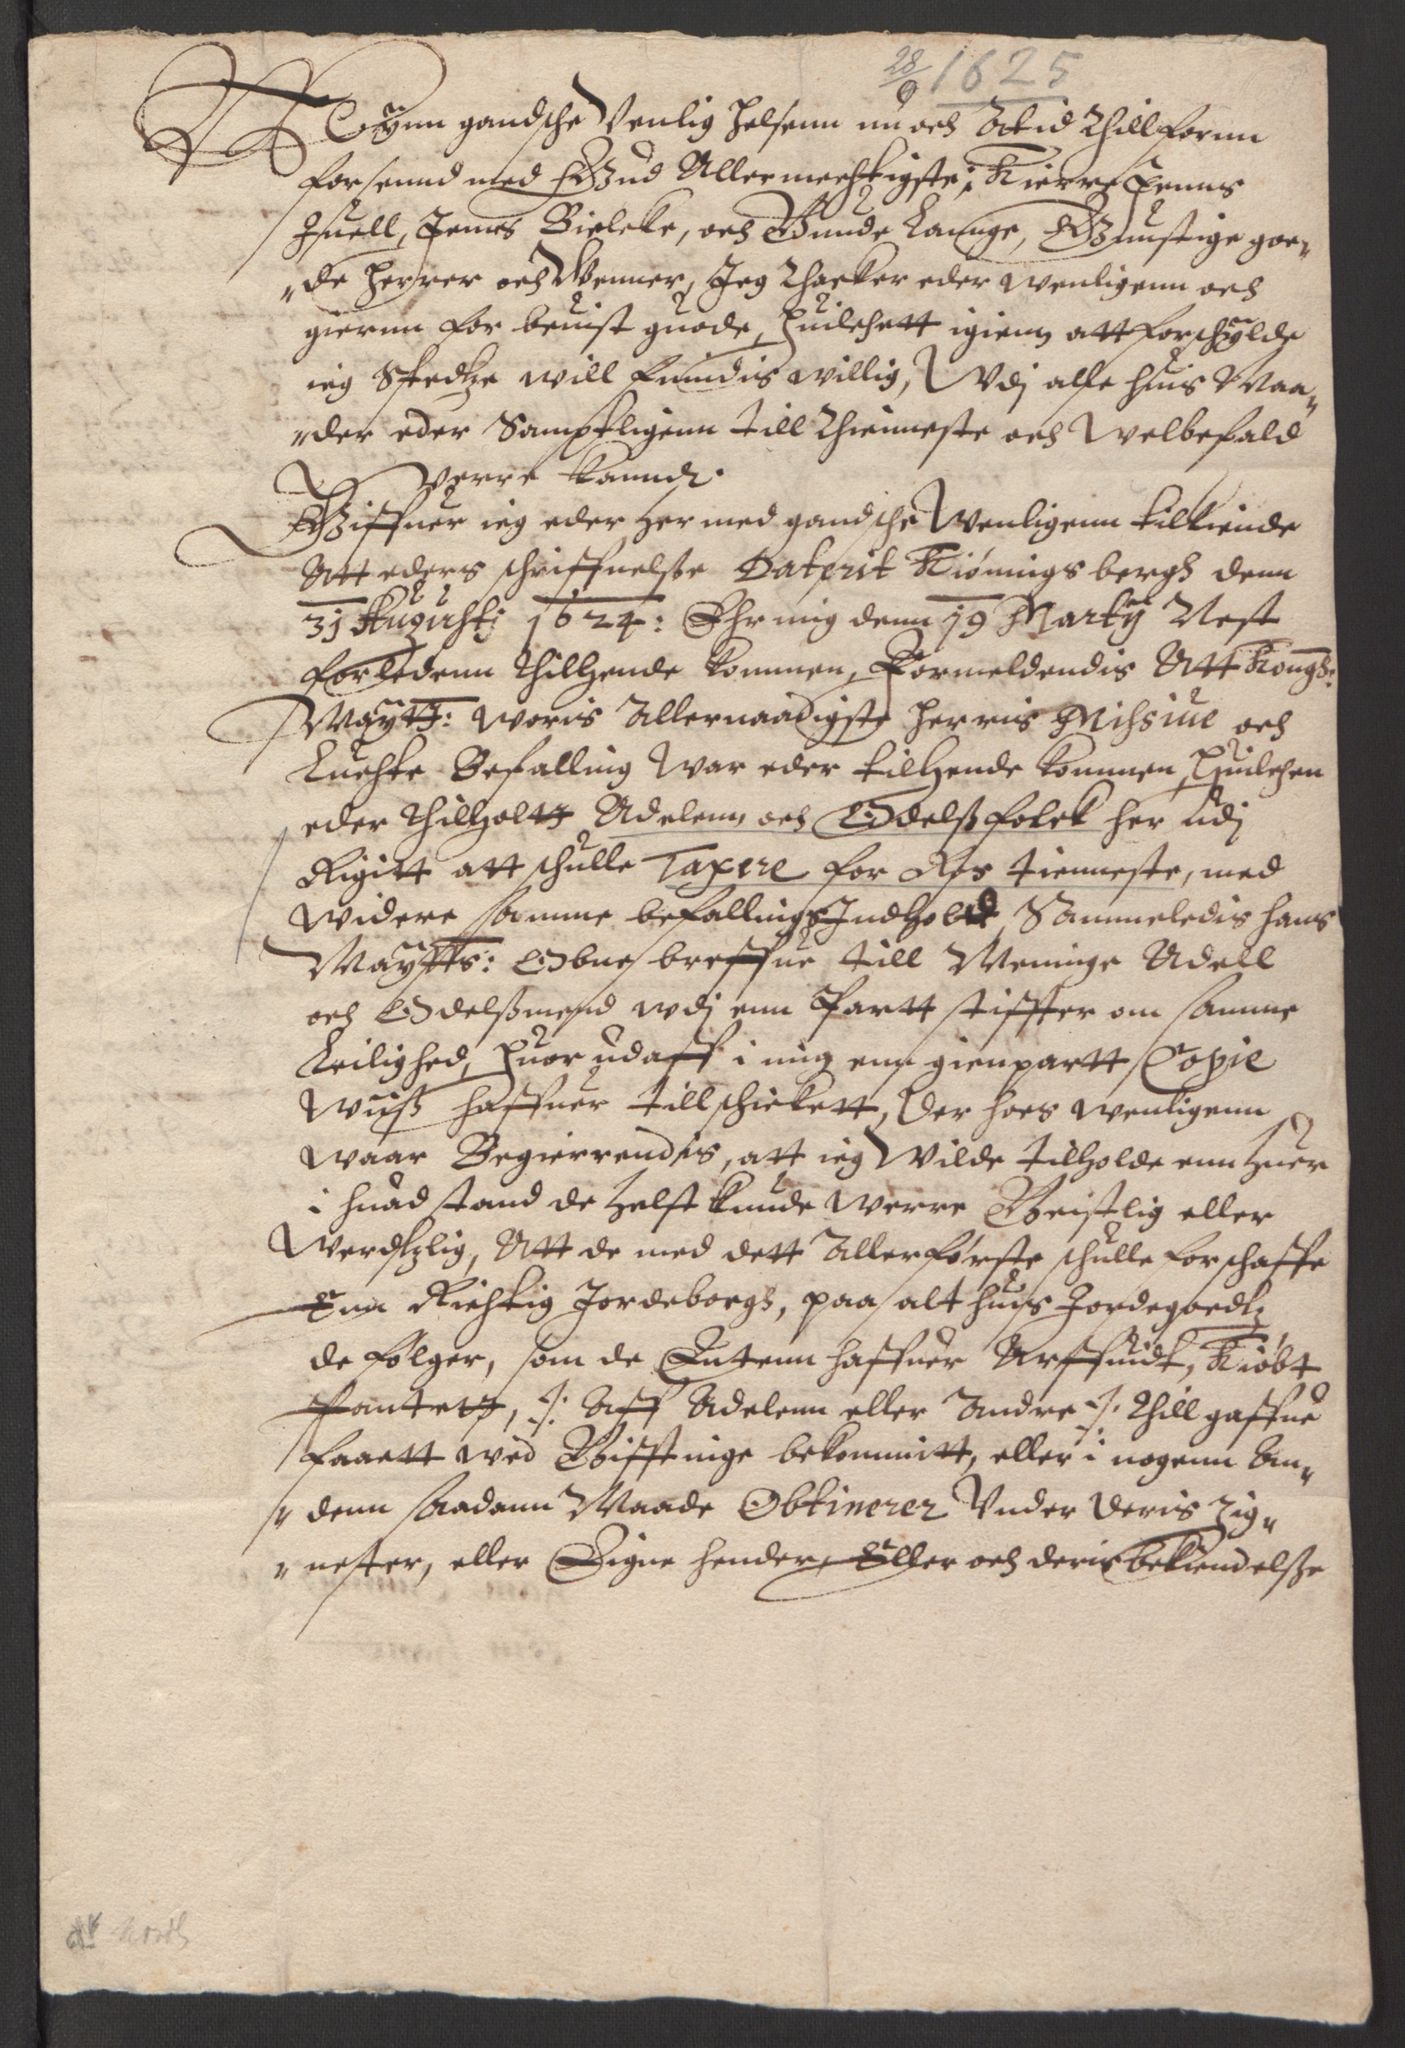 28/9 1625
Mynn gandsche Venlig helsenn nu och Altid Thillfornn
forsennd med Gud Allermechtigste; Kierre Jenns
Juell, Jenns Bielcke, och Gunde Lannge, Gunstige goe-
de Herrer och Wenner, Jeg Thacker eder wenligenn och
giernn for beuist guode, Huilchett igienn att forschylde
ieg Stedtze will findis willig, Vdj alle huis Maa-
der eder Samptligenn till Thienneste och Welbefald
Verre kannd.
Giffuer ieg eder her med gandsche Wenligenn tilkiende
Att eders schriffuelsse Daterit Kiønings bergh denn
31 Augustj 1624: Ehr mig denn 19 Martij Nest
forledenn thillhende kommen, Formeldendis Att Kongh:
Maytt: woris Allernaadigste Herris Missiue och
Luchte Befalling War eder tilhende kommen, Huilchen
eder thillholtt Adelenn och Odelssfolck her udj
Rigitt att schulle Taxere for Ros tienneste, med
widere samme befallings Indhold, Sammeledis hans
Maytts: Obne breffue till Meninge Adell
och Odelssmend udj enn Partt stiffter om samme
Leilighed, Huor udaff i mig enn gienpartt Copie
wiiss haffuer tillschickett, Der hoes wenligenn
waar Begierrendis, att ieg Wilde tilholde enn huer
i huad stand de helst kunde werre Geistlig eller
Werdtzlig, Att de med dett Allerførste schulle forschaffe
Enn Richtig Jordebogh, paa alt huis Jordegoedtz
de følger, som de Entenn haffuer Arffuidt, Kiøbt
Pantett, ·/: Aff Adelenn eller Andre :/· Thill gaffue
faaett wed Gifftinge bekommitt, eller i nogenn An-
denn saadann Maade Obtinerer Vnder Deris Zig-
neter, eller Eigne hender, Eller och deris bekiendelsse